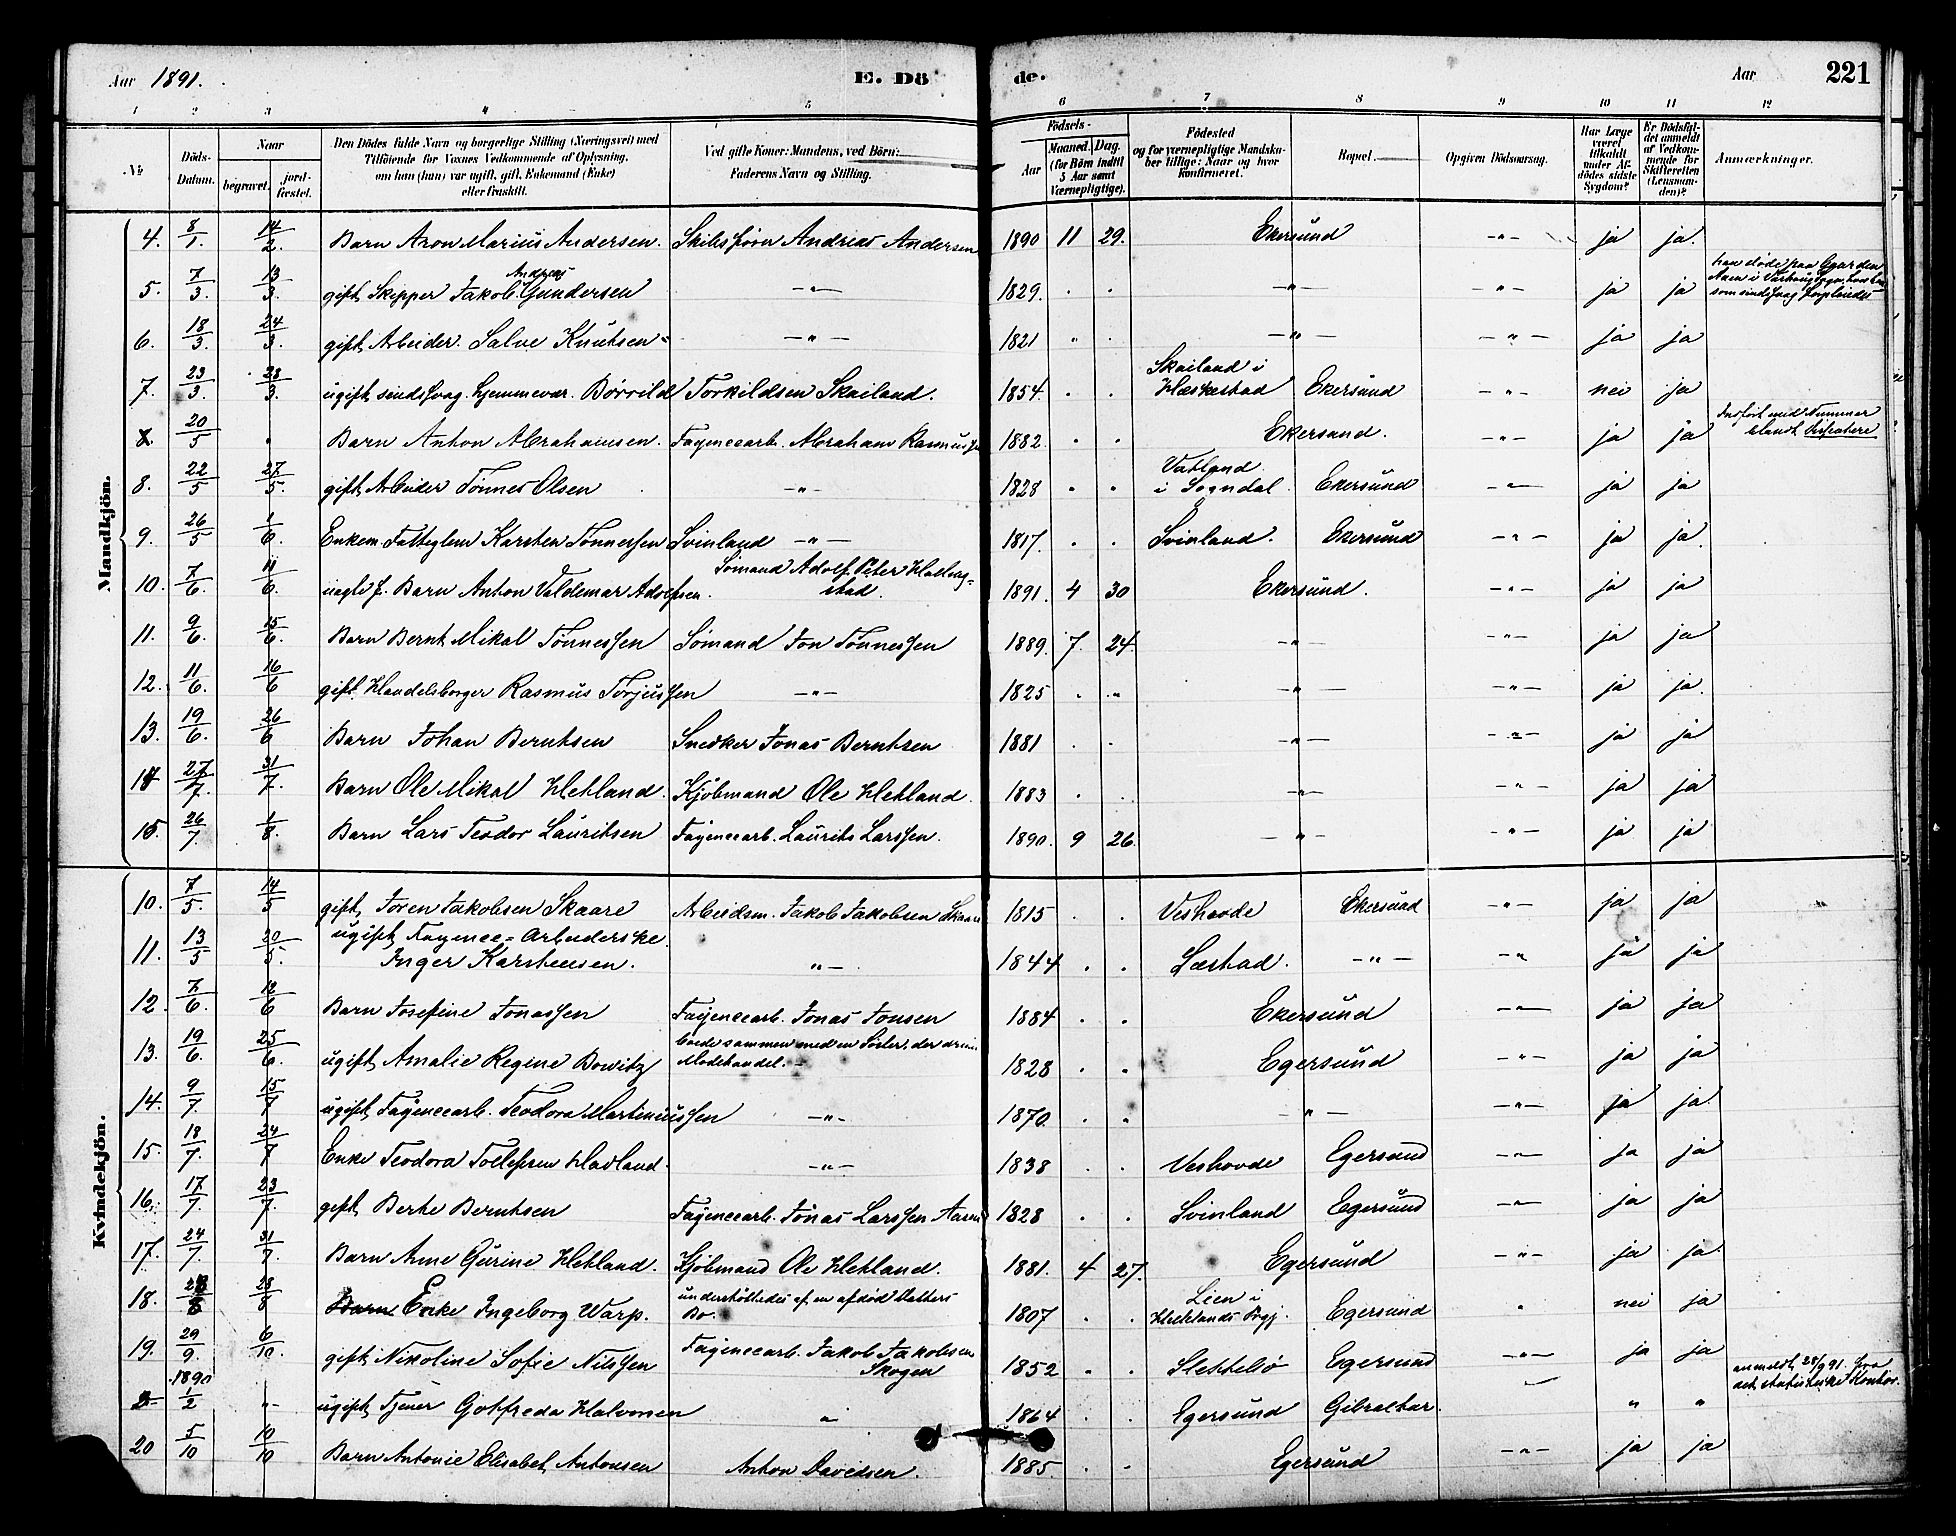 Aar 1891. E. Dö de. Aar 221
1 2 3 4 5 6 7 8 9 10 11 12
№ Döds-Datum. Naar begravet. jord-fæstet. Den Dödes fulde Navn og borgerlige Stilling (Næringsvei) med Tilföiende for Voxnes Vedkommende af Oplysning, om han (hun) var ugift, gift, Enkemand (Enke) eller fraskilt. Ved gifte Koner: Mandens, ved Börn: Faderens Navn og Stilling. Födsels- Aar Maaned. Dag. (for Börn indtil 5 Aar samt Værnepligtige). Födested og for værnepligtige Mandskaber tillige: Naar og hvor Konfirmeret. Bopæl. Opgiven Dödsaarsag. Har Læge været tilkaldt under Afdödes sidste Sygdom? Er Dödsfaldet anmeldt af Vedkommende for Skifteretten (Lensmanden)? Anmærkninger.
Mandkjön.
4. 8/1. 14/2. Barn Aron Marius Andersen. Skibsförer Andreas Andersen 1890 11 29. Ekersund -"- ja ja.
5. 7/3. 13/3. gift Skipper Jakob Andreas Gundersen -"- 1829. . . -"- -"- ja ja han döde paa Gaarden
6. 18/3. 24/3. gift Arbeider. Salve Knutsen -"- 1821 " . -"- -"- ja ja
7. 23/3. 28/3. ugift sindssvag. Hjemmevær. Börrild Torkildsen Skailand. 1854. . . Skailand i Heskestad Ekersund -"- nei ja
8. 20/5 " Barn Anton Abrahamsen. Fayencearb. Abraham Rasmussen 1882. . . Ekersund. -"- ja ja Indfört med Nummer blandt Dissentere
8. 22/5 27/5. gift Arbeider Tönnes Olsen -"- 1828 " " Vatland i Sogndal Ekersund -"- ja ja
9. 26/5 1/6. Enkem. Fattiglem Karsten Tönnessen Svinland -"- 1817. . . Svinland. Ekersund -"- ja ja.
10. 7/6. 11/6. uægte f. Barn Anton Valdemar Adolfsen. Sömand Adolf Peter Hadlagstad. 1891. 4 30 Ekersund. -"- ja ja
11. 9/6. 15/6. Barn Bernt Mikal Tönnessen Sömand Jon Tönnessen 1889. 7. 24. -"- -"- ja ja
12. 11/6. 16/6 gift Handelsborger Rasmus Torjussen -"- 1825 . . -"- -"- ja ja.
13. 19/6. 26/6 Barn Johan Berntsen Snedker Jonas Berntsen 1881 . . -"- -"- ja ja
14 27/7. 31/7. Barn Ole Mikal Hetland. Kjöbmand Ole Hetland. 1883 . . -"- -"- ja ja
15. 26/7 1/8. Barn Lars Teodor Lauritsen Fayencearb. Laurits Larssen. 1890. 9 26. -"- -"- ja ja
Kvindekjön.
10. 7/5. 14/5 gift Joren Jakobsen Skaare Arbeidsm. Jakob Jakobsen Skaare 1815 . . Veshovde Ekersund -"- ja ja
11. 13/5 20/5. ugift Fayence-Arbeiderske Inger Karstensen. -"- 1844 . . Læstad. -"- -"- ja ja
12. 7/6. 12/6 Barn Josefine Jonassen Fayencearb. Jonas Jonsen 1884 . . Ekersund -"- ja ja
13. 19/6. 25/6. ugift Amalie Regine Bowitz boede sammen med en Söster, der drev Modehandel. 1828 . . Egersund -"- ja ja
14. 9/7. 15/7 ugift Fayencearb. Teodora Martiniussen -"- 1870 . . -"- -"- ja ja.
15. 18/7. 24/7 Enke Teodora Tollefsen Hadland. -"- 1838 . . Veshovde Egersund -"- ja ja
16. 17/7. 23/7. gift Berte Berntsen Fayencearb. Jonas Larssen 1828 . . Svinland Egersund -"- ja ja
17. 24/7. 31/7. Barn Anne Gurine Hetland. Kjöbmand Ole Hetland. 1881. 4 27. Egersund -"- ja ja.
18. 28/8 Barn Enke Ingeborg Warp. underholdtes af en afdöd Datters Bo. 1807 . . Lien i Hetlands Prgj. Egersund " nei ja
19. 29/9. 6/10. gift Nikoline Sofie Nilssen Fayencearb. Jakob Jakobsen Skogen 1852 . . Slettebö Egersund -"- ja ja
1890 1/2 -"- ugift Tjener Gotfreda Halvorsen " 1864 . . Egersund Gibraltar. " " anmeldt 28/9 91. fra det statistiske Kontor.
20 5/10 10/10 Barn Antonie Elisabet Antonsen Anton Davidsen. 1885 . . Egersund -"- ja ja